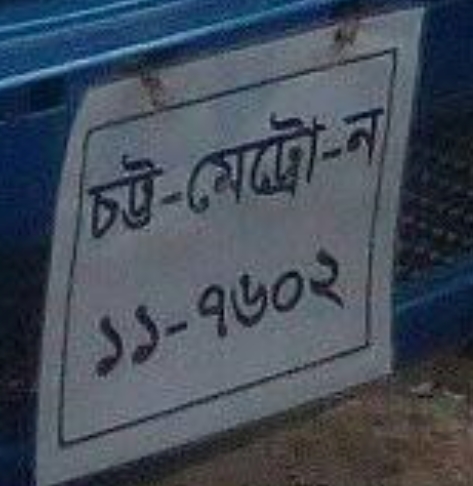 চট্ট-মেট্রো-ন
১১-৭৬০২